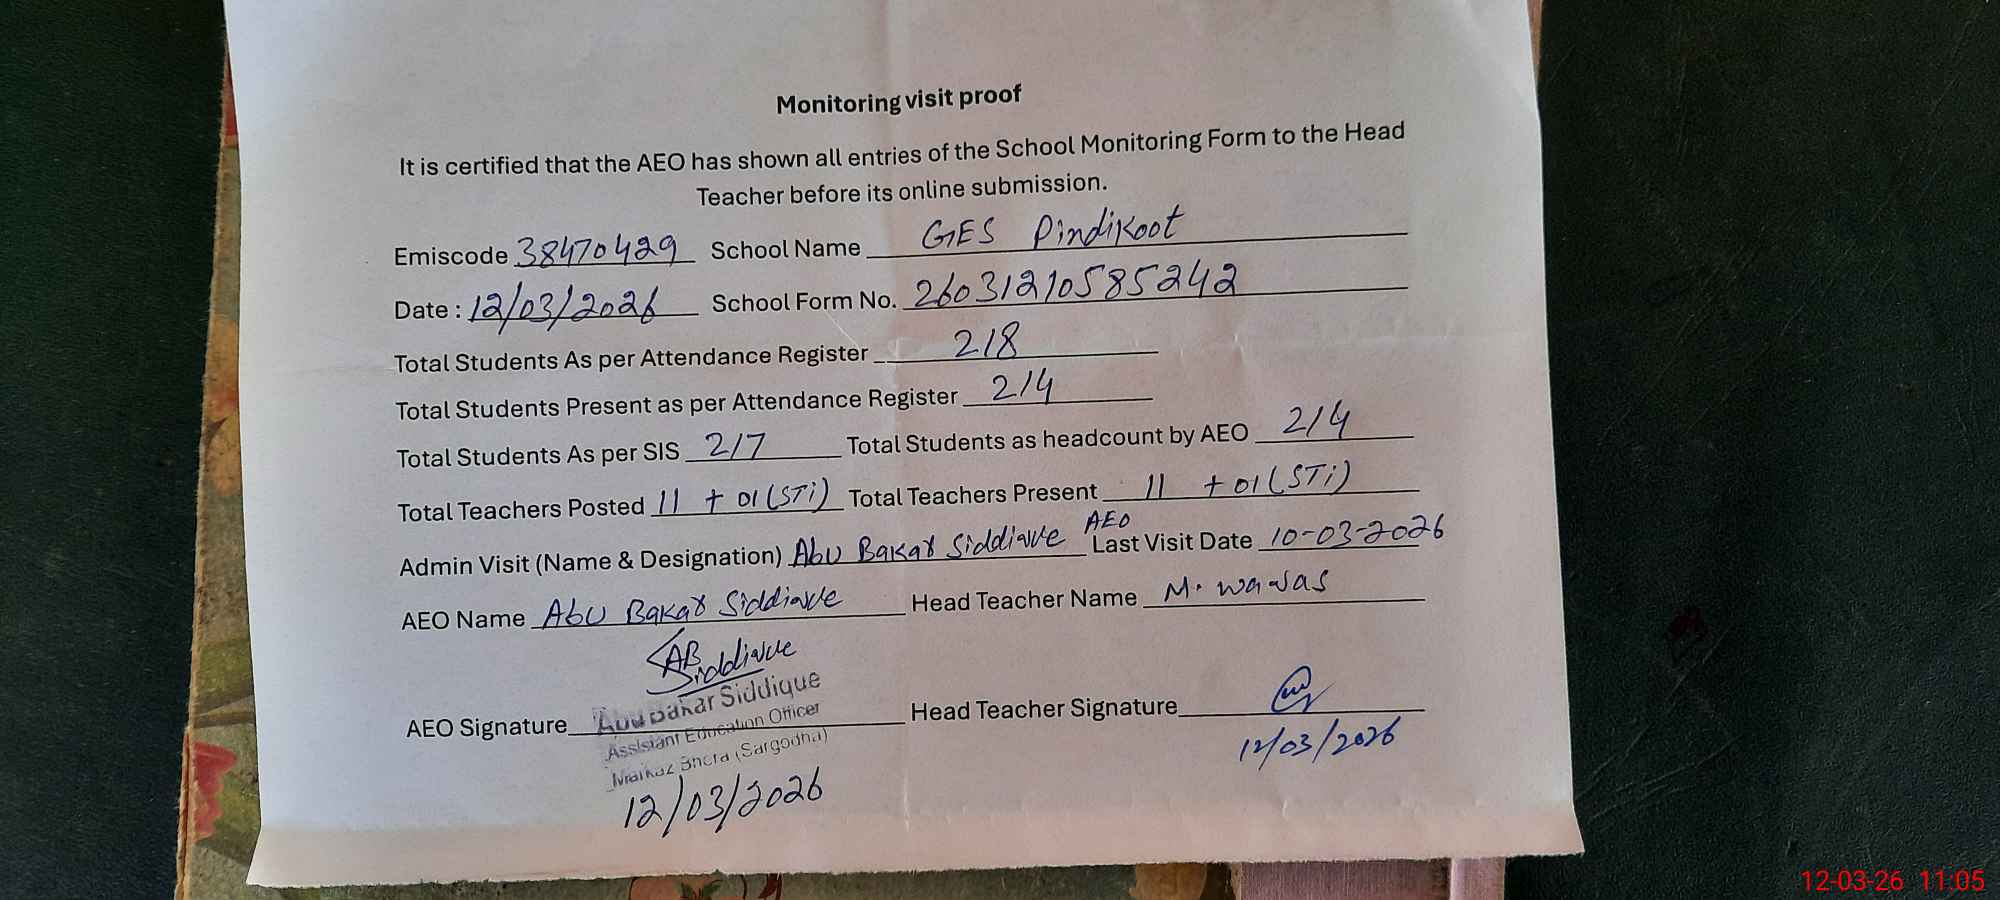 Monitoring visit proof
It is certified that the AEO has shown all entries of the School Monitoring Form to the Head
Teacher before its online submission.
Emiscode 38470429 School Name GES Pindikoot
Date : 12/03/2026 School Form No. 26031210585242
Total Students As per Attendance Register 218
Total Students Present as per Attendance Register 214
Total Students As per SIS 217 Total Students as headcount by AEO 214
Total Teachers Posted 11 + 01 (STi) Total Teachers Present 11 + 01 (STi)
Admin Visit (Name & Designation) Abu Bakar Siddique AEO Last Visit Date 10-03-2026
AEO Name Abu Bakar Siddique Head Teacher Name M. Waqas
AB Siddique
AEO Signature Abu Bakar Siddique Head Teacher Signature
Assistant Education Officer
Markaz Bhera (Sargodha)
12/03/2026 12/03/2026
12-03-26 11:05